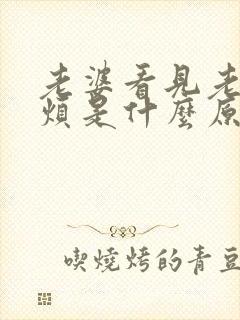 老婆看見老
煩是什麼原
喫燒烤的青豆